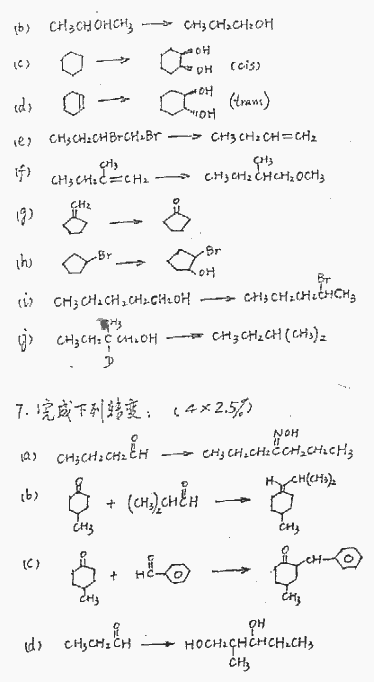 (b) CH3CHOHCH3 → CH3CH2CH2OH
(c) → OH OH (cis)
(d) → OH OH (trans)
(e) CH3CH2CHBrCH2Br → CH3CH2CH=CH2
(f) CH3CH2C(CH3)=CH2 → CH3CH2CH(CH3)CH2OCH3
(g) CH2 → O
(h) Br → Br OH
(i) CH3CH2CH2CH2CH2OH → CH3CH2CH2CH(Br)CH3
(j) CH3CH2C(CH3)(D)CH2OH → CH3CH2CH(CH3)2
7. 完成下列转变: (4×2.5%)
(a) CH3CH2CH2CH(=O) → CH3CH2CH2C(=NOH)CH2CH2CH3
(b) O CH3 + (CH3)2CHCH(=O) → H CH(CH3)2 CH3
(c) O CH3 + HC(=O) → O CH CH3
(d) CH3CH2CH(=O) → HOCH2CH(CH3)CH(OH)CH2CH3